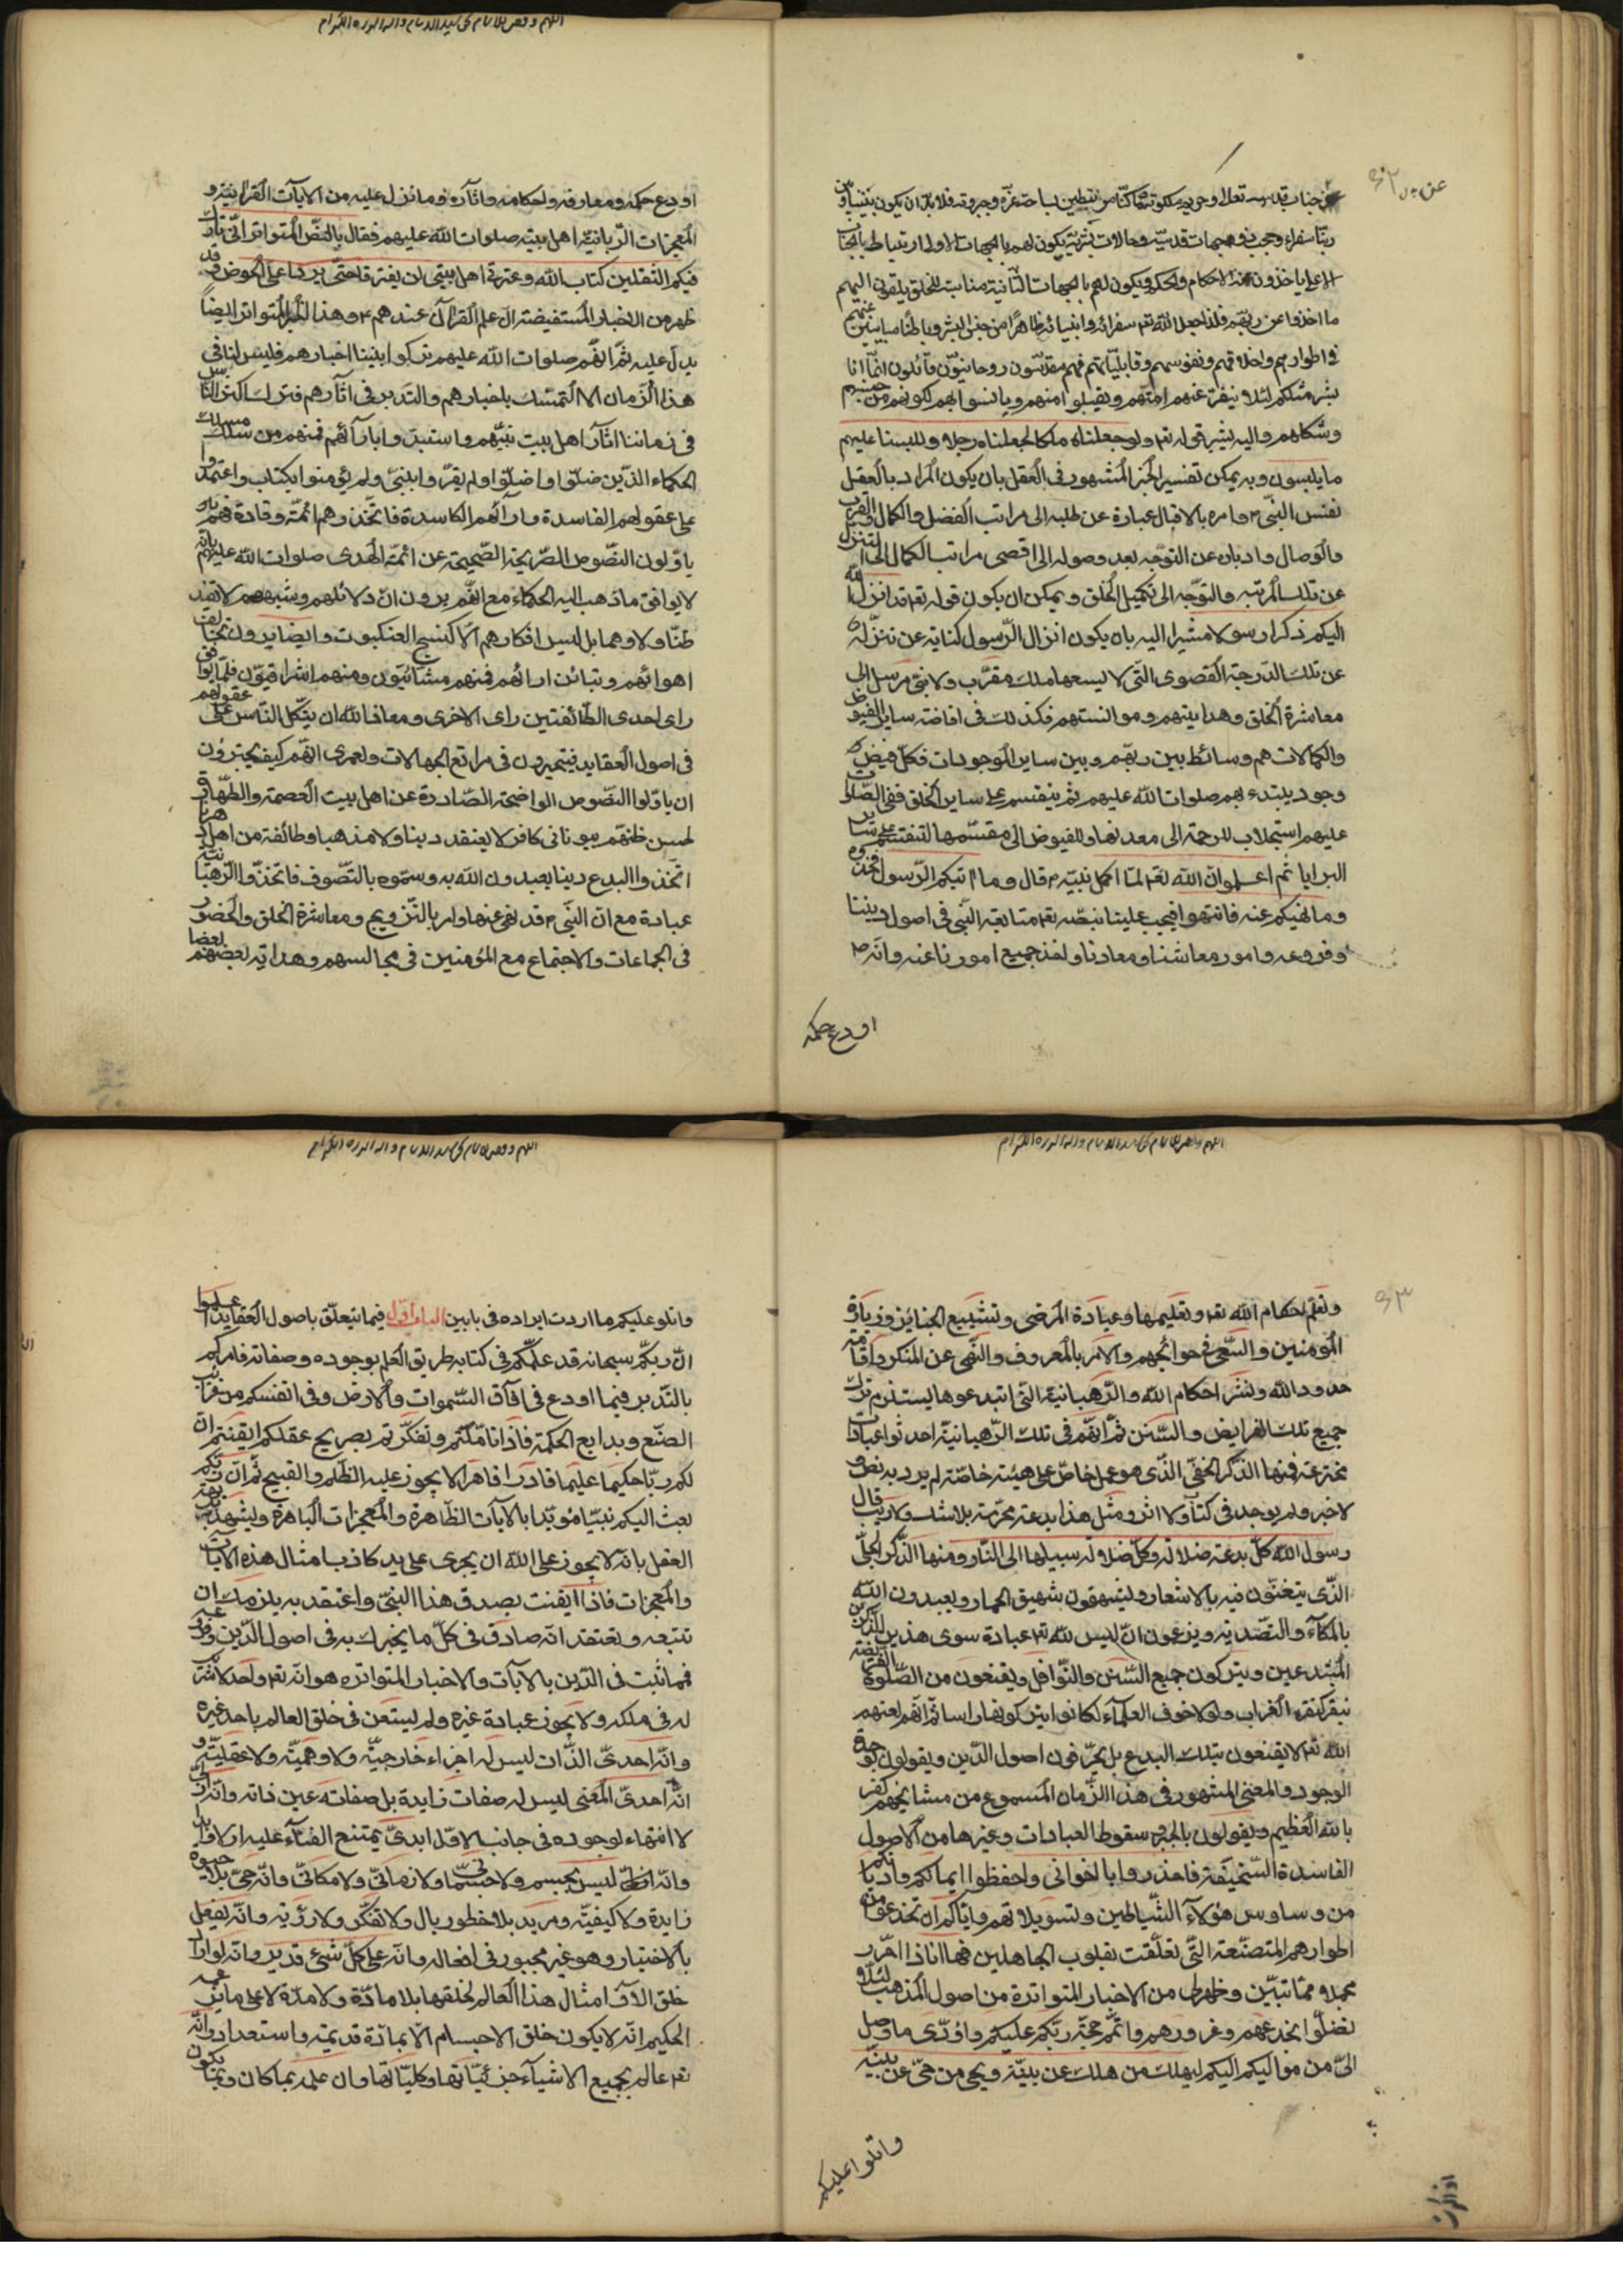 عن جناب قدسه تعالى و حريم ملكوته و ما كنا مرتبطين بساحة عزه و جبروته فلا بد ان يكون بيننا و بين
ربنا سفراء و حجب ذو جهات قدسية و حالات بشرية يكون لهم بالجهات الاول ارتباط بالجناب
الاعلى ياخذون عنه الاحكام و الحكم و يكون لهم بالجهات الثانية مناسبة للخلق يلقون اليهم
ما اخذوا عن ربهم فلذا جعل الله تع سفرائه و انبيائه ظاهرا من جنس البشر و باطنا مباينين عنهم
في اطوارهم و اخلاقهم و نفوسهم و قابلياتهم فهم مقدسون روحانيون قائلون انما انا
بشر مثلكم لئلا ينفر عنهم امتهم و يقبلوا منهم و يانسوا بهم لكونهم من جنسهم
و شكلهم و اليه يشير قوله تع و لو جعلناه ملكا لجعلناه رجلا و للبسنا عليهم
ما يلبسون و به يمكن تفسير الخبر المشهور في العقل بان يكون المراد بالعقل
نفس النبي ص و امره بالاقبال عبارة عن طلبه الى مراتب الفضل و الكمال و القرب
و الوصال و ادباره عن التوجه بعد وصوله الى اقصى مراتب الكمال الى التنزل
عن تلك المرتبه و التوجه الى تكميل الخلق و يمكن ان يكون قوله تع قد انزل الله
اليكم ذكرا رسولا مشيرا اليه بان يكون انزال الرسول كناية عن تنزله
عن تلك الدرجة القصوى التى لا يسعها ملك مقرب و لا نبي مرسل الى
معاشرة الخلق و هدايتهم و موانستهم فكذلك في افاضة ساير الفيوض
و الكمالات هم وسائط بين ربهم و بين ساير الموجودات فكل فيض و
وجود يبتدء بهم صلوات الله عليهم ثم ينقسم على ساير الخلق ففي الصلوات
عليهم استجلاب للرحمة الى معدنها و للفيوض الى مقسمها لتنقسم على ساير
البرايا ثم اعلموا ان الله تع لما اكمل نبيه ص قال و ما اتيكم الرسول فخذوه
و ما نهيكم عنه فانتهوا فيجب علينا بنصه تع متابعة النبي في اصول ديننا
و فروعه و امور معاشنا و معادنا و اخذ جميع امورنا عنه و انه ص
اودع حكمه
اودع حكمه و معارفه و احكامه و اثاره و ما نزل عليه من الايات القرانية و
المعجزات الربانية اهل بيته صلوات الله عليهم فقال بالنص المتواتر انى تارك
فيكم الثقلين كتاب الله و عترتي اهل بيتي لن يفترقا حتى يردا على الحوض و قد
ظهر من الاخبار المستفيضة ان علم القرآن عندهم ع و هذا الخبر المتواتر ايضا
يدل عليه ثم انهم صلوات الله عليهم تركوا بيننا اخبارهم فليس لنا في
هذا الزمان الا التمسك باخبارهم و التدبر في اثارهم فترك اكثر الناس
في زماننا اثار اهل بيت نبيهم و استبدوا بارائهم فمنهم من سلك مسلك
الحكماء الذين ضلوا و اضلوا و لم يقروا بنبي و لم يؤمنوا بكتاب و اعتمدوا
على عقولهم الفاسدة و ارائهم الكاسدة فاتخذوهم ائمة و قادة فهم
ياولون النصوص الصريحة الصحيحة عن ائمة الهدى صلوات الله عليهم بانه
لا يوافق ما ذهب اليه الحكماء مع انهم يرون ان دلائلهم و شبههم لا تفيد
ظنا و لا وهما بل ليس افكارهم الا كنسج العنكبوت و ايضا يرون تخالف
اهوائهم و تباين ارائهم فمنهم مشائيون و منهم اشراقيون قلما يوافق
راى احدى الطائفتين راى الاخرى و معاذ الله ان يتكل الناس على عقولهم
في اصول العقايد فيتحيرون في مراتع الجهالات و لعمرى انهم كيف يجترؤن
ان ياولوا النصوص الواضحة الصادرة عن اهل بيت العصمة و الطهارة
لحسن ظنهم بيونانى كافر لا يعتقد دينا و لا مذهبا و طائفة من اهل دهرنا
اتخذوا البدع دينا يعبدون الله به و سموه بالتصوف فاتخذوا الرهبانية
عبادة مع ان النبي ص قد نهى عنها و امر بالتزويج و معاشرة الخلق و الحضور
في الجماعات و الاجتماع مع المؤمنين في مجالسهم و هداية بعضهم بعضا
و تعلم احكام الله تع و تعليمها و عيادة المرضى و تشييع الجنائز و زيارة
المؤمنين و السعى في حوائجهم و الامر بالمعروف و النهى عن المنكر و اقامة
حدود الله و نشر احكام الله و الرهبانية التى ابتدعوها يستلزم ترك
جميع تلك الفرايض و السنن ثم انهم في تلك الرهبانية احدثوا عبادات
مخترعة فمنها الذكر الخفي الذى هو عمل خاص على هيئة خاصة لم يرد به نص و
لا خبر و لم يوجد في كتاب و لا اثر و مثل هذا بدعة محرمة بلا شك و لا ريب قال
رسول الله كل بدعة ضلالة و كل ضلالة سبيلها الى النار و منها الذكر الجلى
الذى يتغنون فيه بالاشعار و يشهقون شهيق الحمار و يعبدون الله
بالمكاء و التصدية و يزعمون ان ليس لله تع عبادة سوى هذين الذكرين
المبتدعين و يتركون جميع السنن و النوافل و يقنعون من الصلوة الفريضة
بنقر كنقر الغراب و لو لا خوف العلماء لكانوا يتركونها راسا ثم انهم لعنهم
الله تع لا يقنعون بتلك البدع بل يحرفون اصول الدين و يقولون بوحدة
الوجود و المعنى المشهور في هذا الزمان المسموع من مشايخهم كفر
بالله العظيم و يقولون بالجبر و سقوط العبادات و غيرها من الاصول
الفاسدة السخيفة فاحذروا يا اخوانى و احفظوا ايمانكم و اديانكم
من وساوس هؤلاء الشياطين و تسويلاتهم و اياكم ان تخدعوا من
اطوارهم المتصنعة التى تعلقت بقلوب الجاهلين فها انا ذا احرر
مجملا مما تبين و ظهر لى من الاخبار المتواترة من اصول المذهب لئلا
تضلوا بخدعهم و غرورهم و اتمم حجة ربكم عليكم و اؤدى ما وصل
الى من مواليكم اليكم ليهلك من هلك عن بينة و يحيى من حى عن بينة
و اتلو عليكم
و اتلو عليكم ما اردت ايراده في بابين الباب الاول فيما يتعلق باصول العقايد اعلموا
ان ربكم سبحانه قد علمكم في كتابه طريق العلم بوجوده و صفاته فامركم
بالتدبر فيما اودع في افاق السموات و الارض و في انفسكم من غرائب
الصنع و بدايع الحكمة فاذا تاملتم و تفكرتم بصريح عقلكم ايقنتم ان
لكم ربا حكيما عليما قادرا قاهرا لا يجوز عليه الظلم و القبيح ثم ان ربكم
بعث اليكم نبيا مؤيدا بالايات الظاهرة و المعجزات الباهرة و يشهد بديهة
العقل بانه لا يجوز على الله ان يجرى على يد كاذب امثال هذه الايات
و المعجزات فاذا ايقنت بصدق هذا النبي و اعتقد به يلزمك ان
تتبعه و تعتقد انه صادق في كل ما يخبرك به في اصول الدين و فروعه
فمما ثبت في الدين بالايات و الاخبار المتواتره هو انه تع واحد لا شريك
له في ملكه و لا يجوز عبادة غيره و لم يستعن في خلق العالم باحد غيره
و انه احدى الذات ليس له اجزاء خارجية و لا وهمية و لا عقلية و
انه احدى المعنى ليس له صفات زايدة بل صفاته عين ذاته و انه ازلى
لا انتهاء لوجوده في جانب الاول ابدى يمتنع الفناء عليه ازلا و ابدا
و انه ليس بجسم و لا جسمانى و لا زمانى و لا مكانى و انه حى بلا حيوة
زايدة و لا كيفية و مريد بلا خطور بال و لا تفكر و لا روية و انه يفعل
بالاختيار و هو غير مجبور في افعاله و انه على كل شئ قدير و انه لو اراد
خلق الآف امثال هذا العالم لخلقها بلا مادة و لا مدة لا على ما يزعمه
الحكيم انه لا يكون خلق الاجسام الا بمادة قديمة و استعداد و انه
تع عالم بجميع الاشياء جزئياتها و كلياتها و ان علمه بما كان و بما يكون